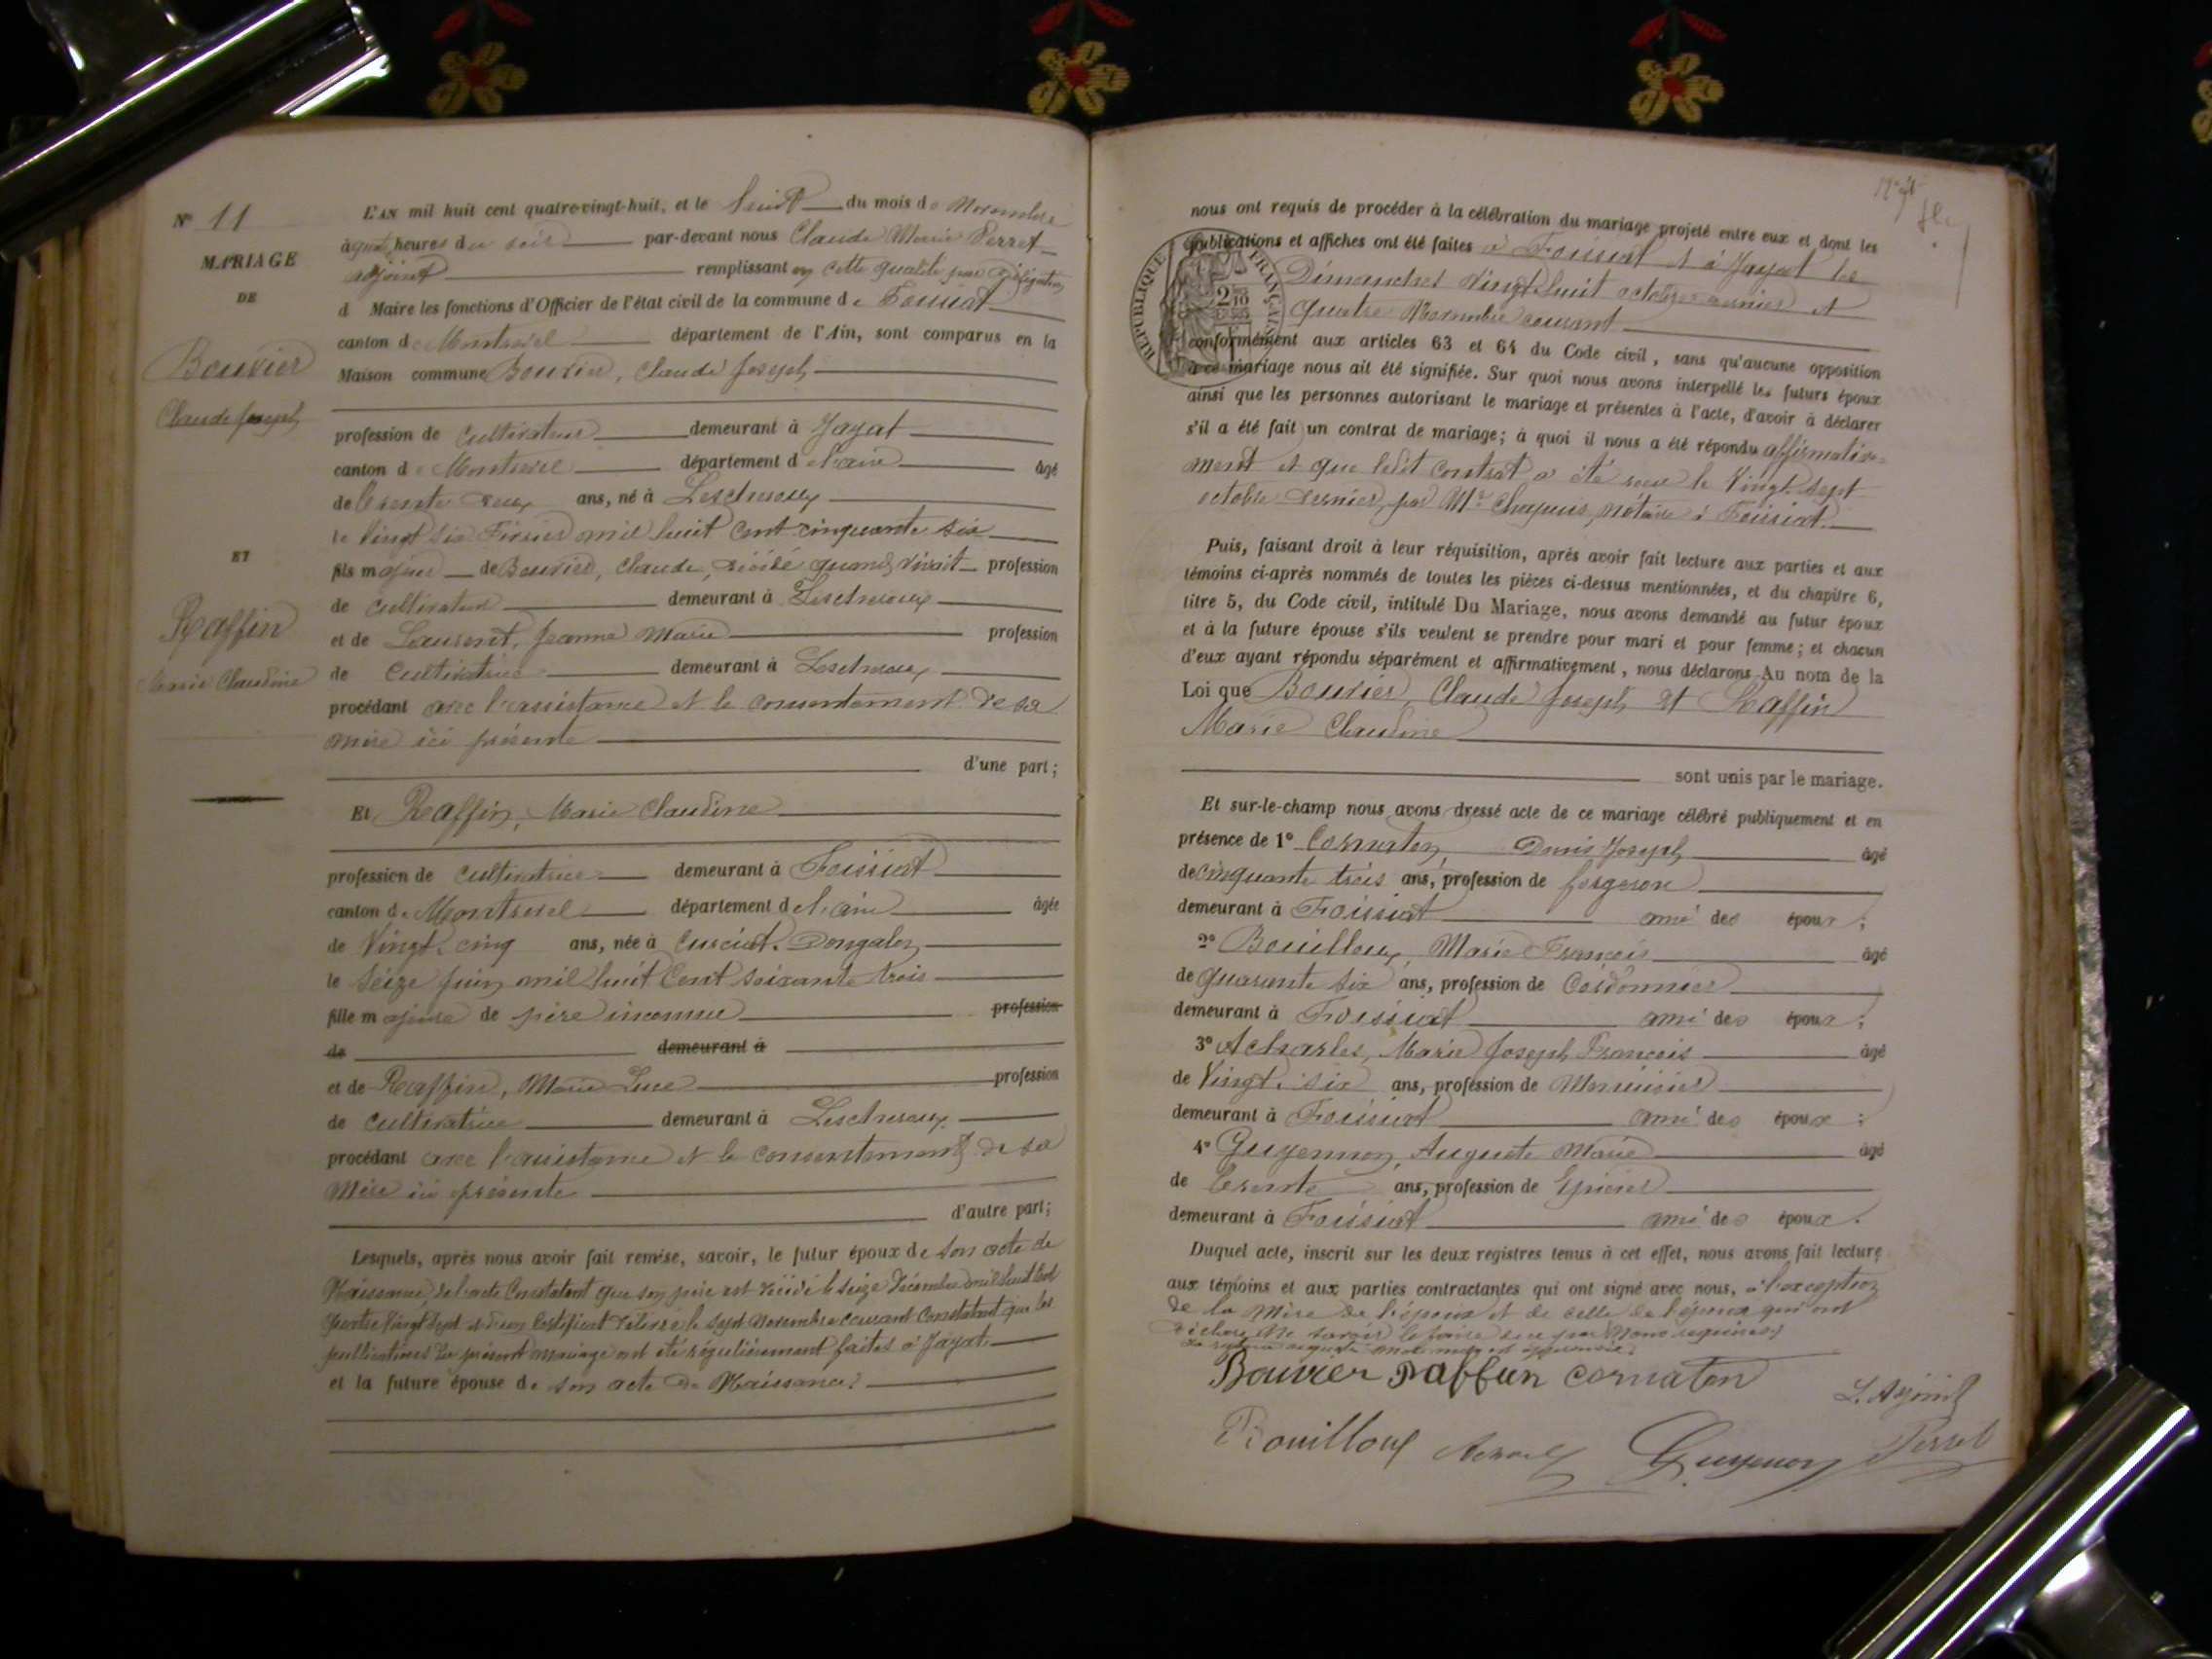 Nº 11
MARIAGE
DE
Bouvier
Claude Joseph
ET
Raffin
Marie Claudine
L'AN mil huit cent quatre-vingt-huit, et le huit du mois de Novembre
à quatre heures du soir par-devant nous Claude Marie Perret
adjoint remplissant en cette qualité par délégation
d Maire les fonctions d'Officier de l'état civil de la commune de Foissiat
canton de Montrevel département de l'Ain, sont comparus en la
Maison commune Bouvier, Claude Joseph
profession de cultivateur demeurant à Jayat
canton de Montrevel département de l'ain âgé
de trente deux ans, né à Lescheroux
le vingt six Février mil huit cent cinquante six
fils majeur de Bouvier, Claude, décédé quand vivait profession
de cultivateur demeurant à Lescheroux
et de Laurent, Jeanne Marie profession
de cultivatrice demeurant à Lescheroux
procédant avec l'assistance et le consentement de sa
mère ici présente
d'une part;
Et Raffin, Marie Claudine
profession de cultivatrice demeurant à Foissiat
canton de Montrevel département de l'ain âgée
de Vingt cinq ans, née à Cuisiat
le seize juin mil huit cent soixante trois
fille majeure de père inconnu profession
de demeurant à
et de Raffin, Marie Luce profession
de cultivatrice demeurant à Lescheroux
procédant avec l'assistance et le consentement de sa
mère ici présente
d'autre part;
Lesquels, après nous avoir fait remise, savoir, le futur époux de son acte de
Naissance, de l'acte Constatant que son père est décédé le seize décembre mil huit cent
quatre vingt sept et d'un Certificat délivré le sept novembre courant Constatant que les
publications du présent mariage ont été régulièrement faites à Jayat
et la future épouse de son acte de Naissance
nous ont requis de procéder à la célébration du mariage projeté entre eux et dont les
publications et affiches ont été faites à Foissiat et à Jayat les
Dimanches Vingt huit octobre dernier et
quatre Novembre courant
RÉPUBLIQUE FRANÇAISE
conformément aux articles 63 et 64 du Code civil, sans qu'aucune opposition
à ce mariage nous ait été signifiée. Sur quoi nous avons interpellé les futurs époux
ainsi que les personnes autorisant le mariage et présentes à l'acte, d'avoir à déclarer
s'il a été fait un contrat de mariage; à quoi il nous a été répondu affirmative-
ment et que ledit contrat a été reçu le Vingt sept
octobre dernier, par Me Chapuis, notaire à Foissiat
Puis, faisant droit à leur réquisition, après avoir fait lecture aux parties et aux
témoins ci-après nommés de toutes les pièces ci-dessus mentionnées, et du chapitre 6,
titre 5, du Code civil, intitulé Du Mariage, nous avons demandé au futur époux
et à la future épouse s'ils veulent se prendre pour mari et pour femme; et chacun
d'eux ayant répondu séparément et affirmativement, nous déclarons Au nom de la
Loi que Bouvier, Claude Joseph et Raffin
Marie Claudine
sont unis par le mariage.
Et sur-le-champ nous avons dressé acte de ce mariage célébré publiquement et en
présence de 1º Cornaton, Denis Joseph âgé
de cinquante trois ans, profession de forgeron
demeurant à Foissiat ami des époux;
2º Bouilloux, Marie François âgé
de quarante six ans, profession de Cordonnier
demeurant à Foissiat ami des époux;
3º Acharles, Marie Joseph François âgé
de Vingt six ans, profession de Menuisier
demeurant à Foissiat ami des époux;
4º Guyennon, Auguste Marie âgé
de trente ans, profession de Epicier
demeurant à Foissiat ami des époux.
Duquel acte, inscrit sur les deux registres tenus à cet effet, nous avons fait lecture
aux témoins et aux parties contractantes qui ont signé avec nous, à l'exception
de la mère de l'époux et de celle de l'épouse qui ont
déclaré ne savoir le faire de ce par nous requises
Bouvier Raffin cornaton
L'Adjoint
Bouilloux Guyennon Perret